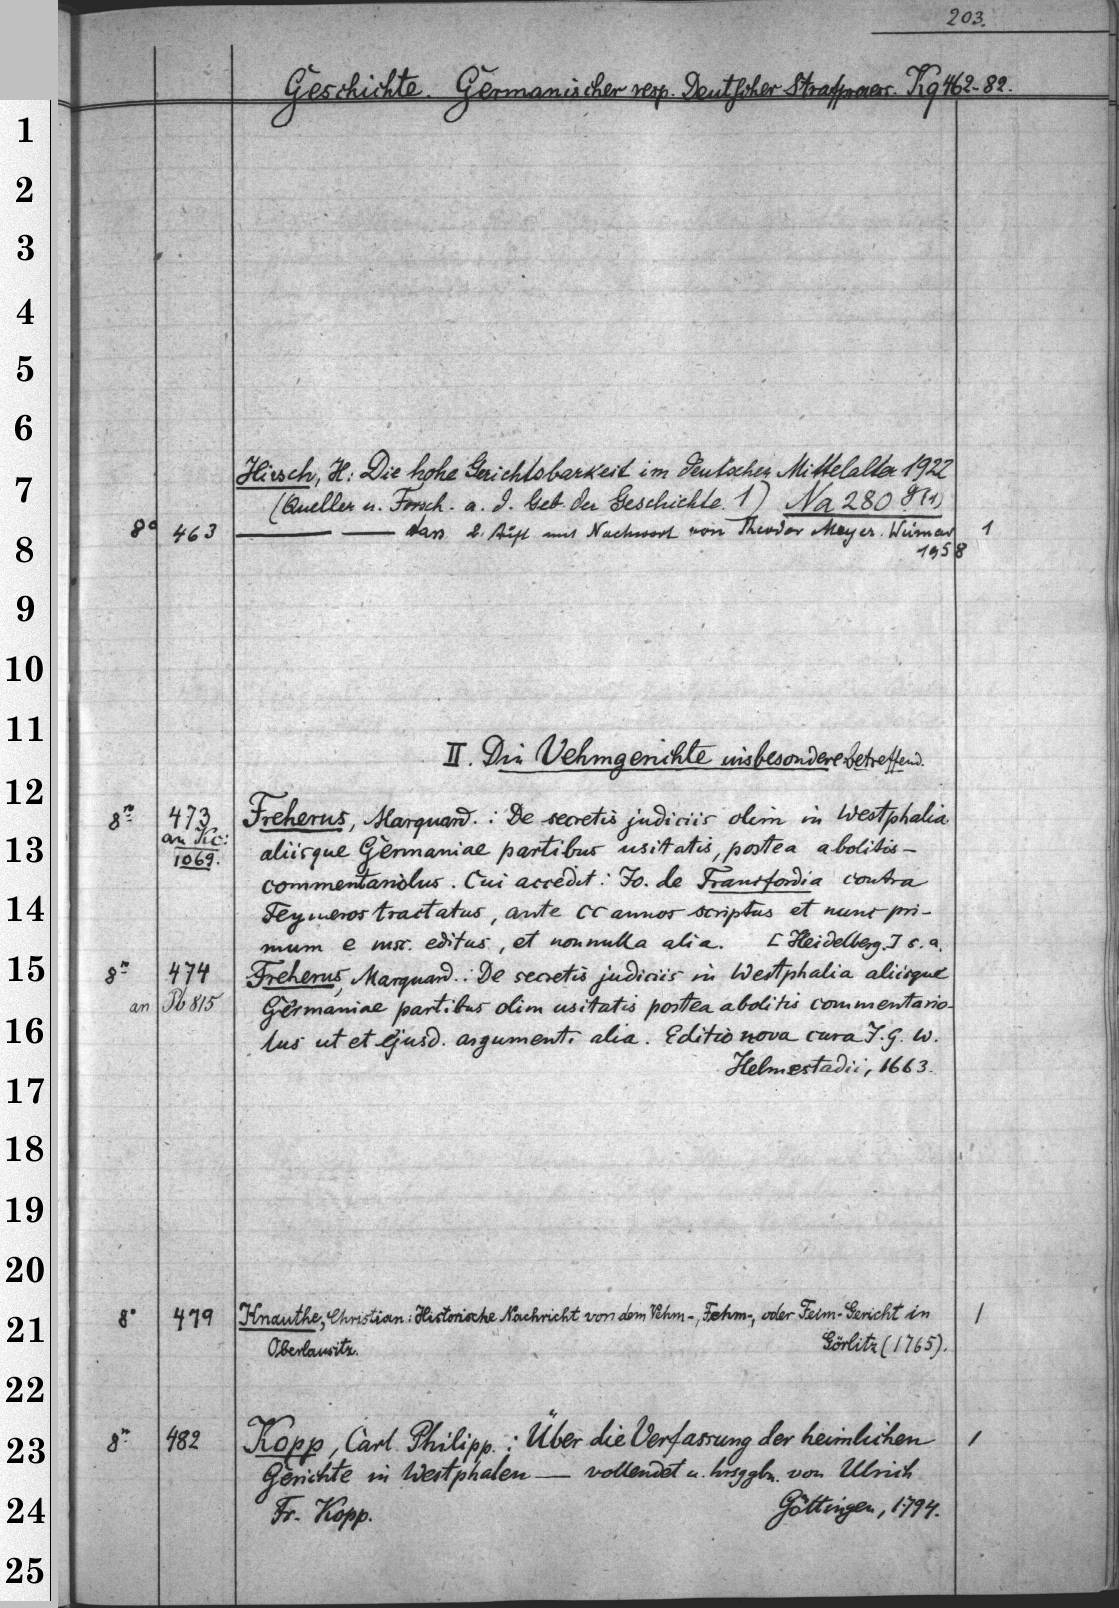 203.
Geschichte. Germanischer resp. Deutscher Strafprocess. Kq 462-82.
1
2
3
4
5
6
Hirsch, H: Die hohe Gerichtsbarkeit im deutschen Mittelalter 1922
7
(Quellen u. Forsch. a. d. Geb. der Geschichte. 1) Na 280 g(1)
8° 463 ——— —— dass. 2. Aufl mit Nachwort von Theodor Mayer. Weimar 1
8
1958
9
10
11
II. Die Vehmgerichte insbesondere betreffend.
12
8° 473 Freherus, Marquard.: De secretis judiciis olim in Westphalia
an Kc: 1069.
13
aliisque Germaniae partibus usitatis, postea abolitis-
commentariolus. Cui accedit: Jo. de Francfordia contra
14
Feymeros tractatus, ante CC annos scriptus et nunc pri-
mum e msc. editus, et nonnulla alia. [Heidelberg.] s. a.
15
8° 474 Freherus, Marquard.: De secretis judiciis in Westphalia aliisque
an Pb 815 Germaniae partibus olim usitatis postea abolitis commentario-
16
lus ut et ejusd. argumenti alia. Editio nova cura J. G. W.
Helmestadii, 1663.
17
18
19
20
8° 479 Knauthe, Christian: Historische Nachricht von dem Vehm-, Fehm-, oder Feim-Gericht in 1
21
Oberlausitz. Görlitz (1765).
22
8° 482 Kopp, Carl Philipp.: Über die Verfassung der heimlichen 1
23
Gerichte in Westphalen — vollendet u. hrsggbn. von Ulrich
24
Fr. Kopp. Göttingen, 1794.
25